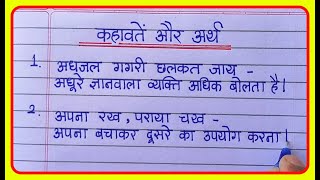 कहावतें और अर्थ
1. अधजल गगरी छलकत जाय -
अधूरे ज्ञानवाला व्यक्ति अधिक बोलता है।
2. अपना रख, पराया चख -
अपना बचाकर दूसरे का उपयोग करना।